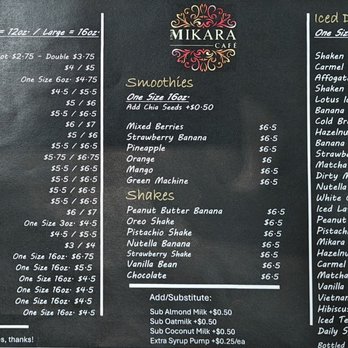 = 12oz. / Large = 16oz.
ot $2.75 - Double $3.75
$4 / $5
One Size 6oz. $4.75
$4.5 / $5.5
$5 / $6
$5.5 / $6.5
$6 / $7
$5 / $6
$5.5 / $6.5
$5.75 / $6.75
$5.5 / $6.5
$5.5 / $6.5
$5.5 / $6.5
$6 / $7
One Size 3oz. $4.5
$4.5 / $5.5
$3 / $4
One Size 16oz. $6.75
One Size 16oz. $5.5
One Size 16oz. $4.5
One Size 16oz. $5.5
One Size 16oz. $4.5
es, thanks!
MIKARA
CAFE
Smoothies
One Size 16oz.
Add Chia Seeds +$0.50
Mixed Berries $6.5
Strawberry Banana $6.5
Pineapple $6.5
Orange $6
Mango $6.5
Green Machine $6.5
Shakes
Peanut Butter Banana $6.5
Oreo Shake $6.5
Pistachio Shake $6.5
Nutella Banana $6.5
Strawberry Shake $6.5
Vanilla Bean $6.5
Chocolate $6.5
Add/Substitute:
Sub Almond Milk +$0.50
Sub Oatmilk +$0.50
Sub Coconut Milk +$0.50
Extra Syrup Pump +$0.25/ea
Iced D
One Size
Shaken
Carmel
Affogat
Shaken
Lotus
Banana
Cold Br
Hazelnu
Banana
Strawbe
Matcha
Dirty M
Nutella
White
Iced La
Peanut
Pistach
Mikara
Hazelnu
Carmel
Matcha
Vanilla
Vietnam
Hibiscus
Iced Te
Daily S
Bottled